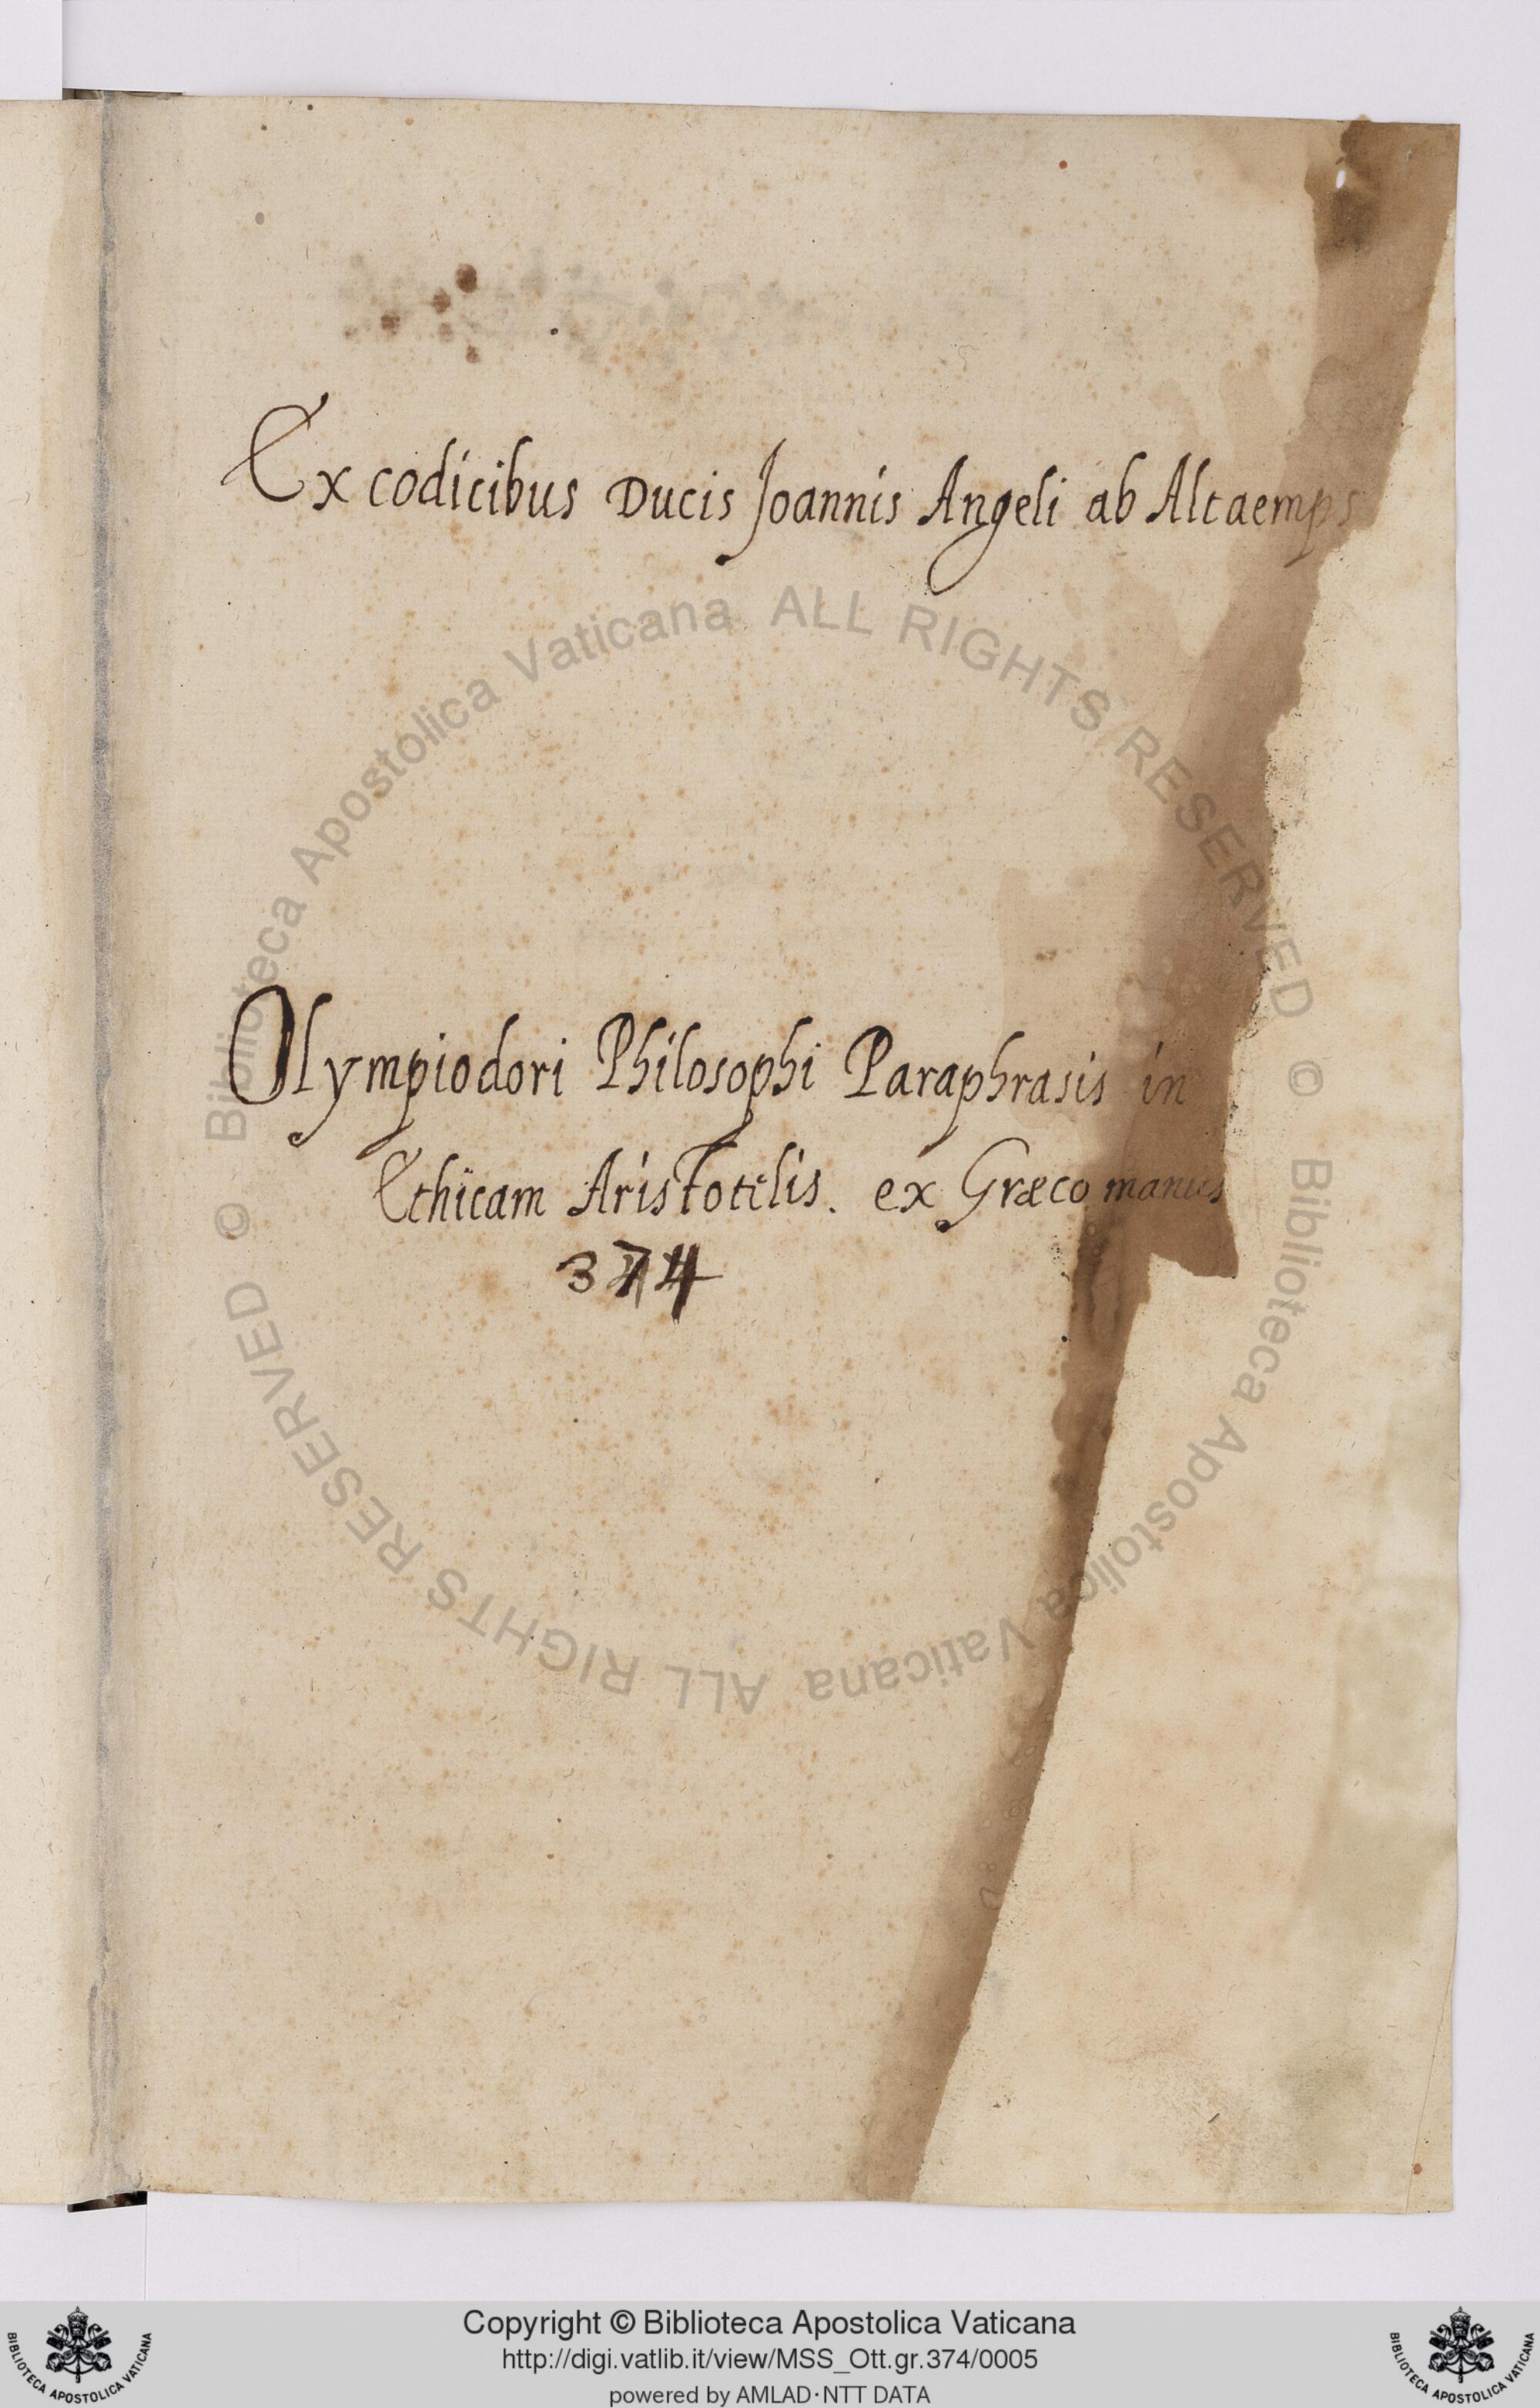 Ex codicibus Ducis Joannis Angeli ab Altaemps
Olympiodori Philosophi Paraphrasis in
Ethicam Aristotelis. ex Græco manus
374
© Biblioteca Apostolica Vaticana ALL RIGHTS RESERVED
© Biblioteca Apostolica Vaticana ALL RIGHTS RESERVED
Copyright © Biblioteca Apostolica Vaticana
http://digi.vatlib.it/view/MSS_Ott.gr.374/0005
powered by AMLAD·NTT DATA
BIBLIOTECA APOSTOLICA VATICANA
BIBLIOTECA APOSTOLICA VATICANA